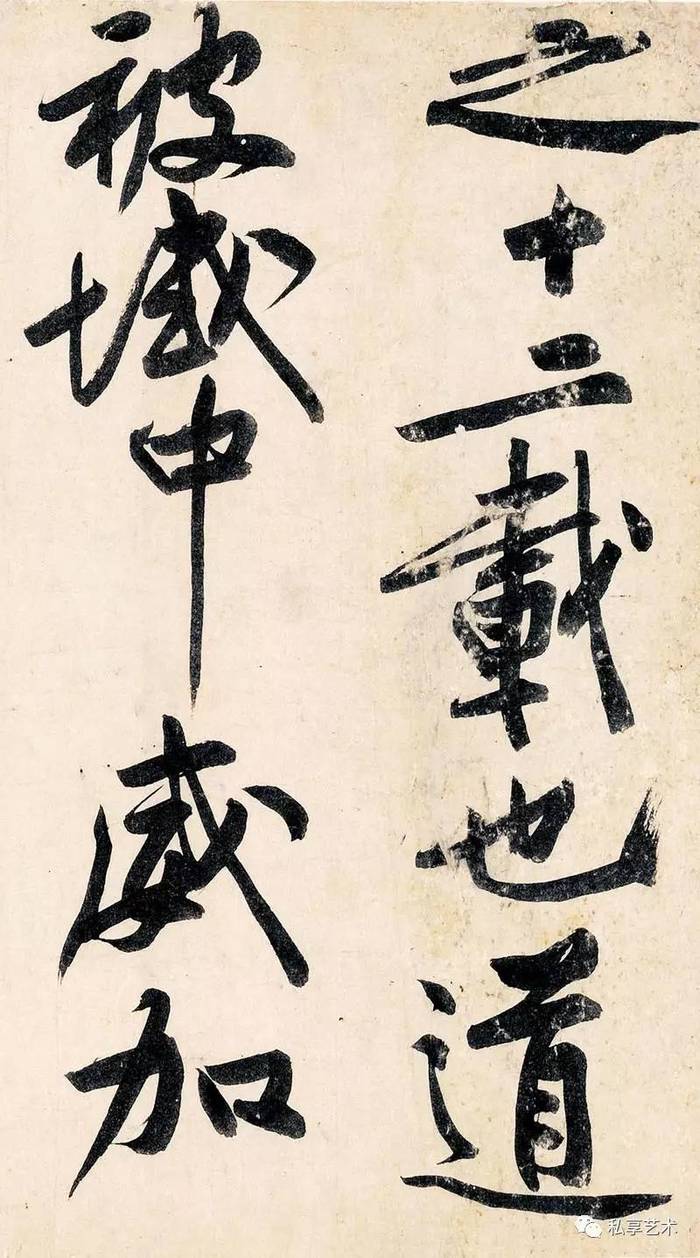 之十二載也道
被域中威加
私享艺术